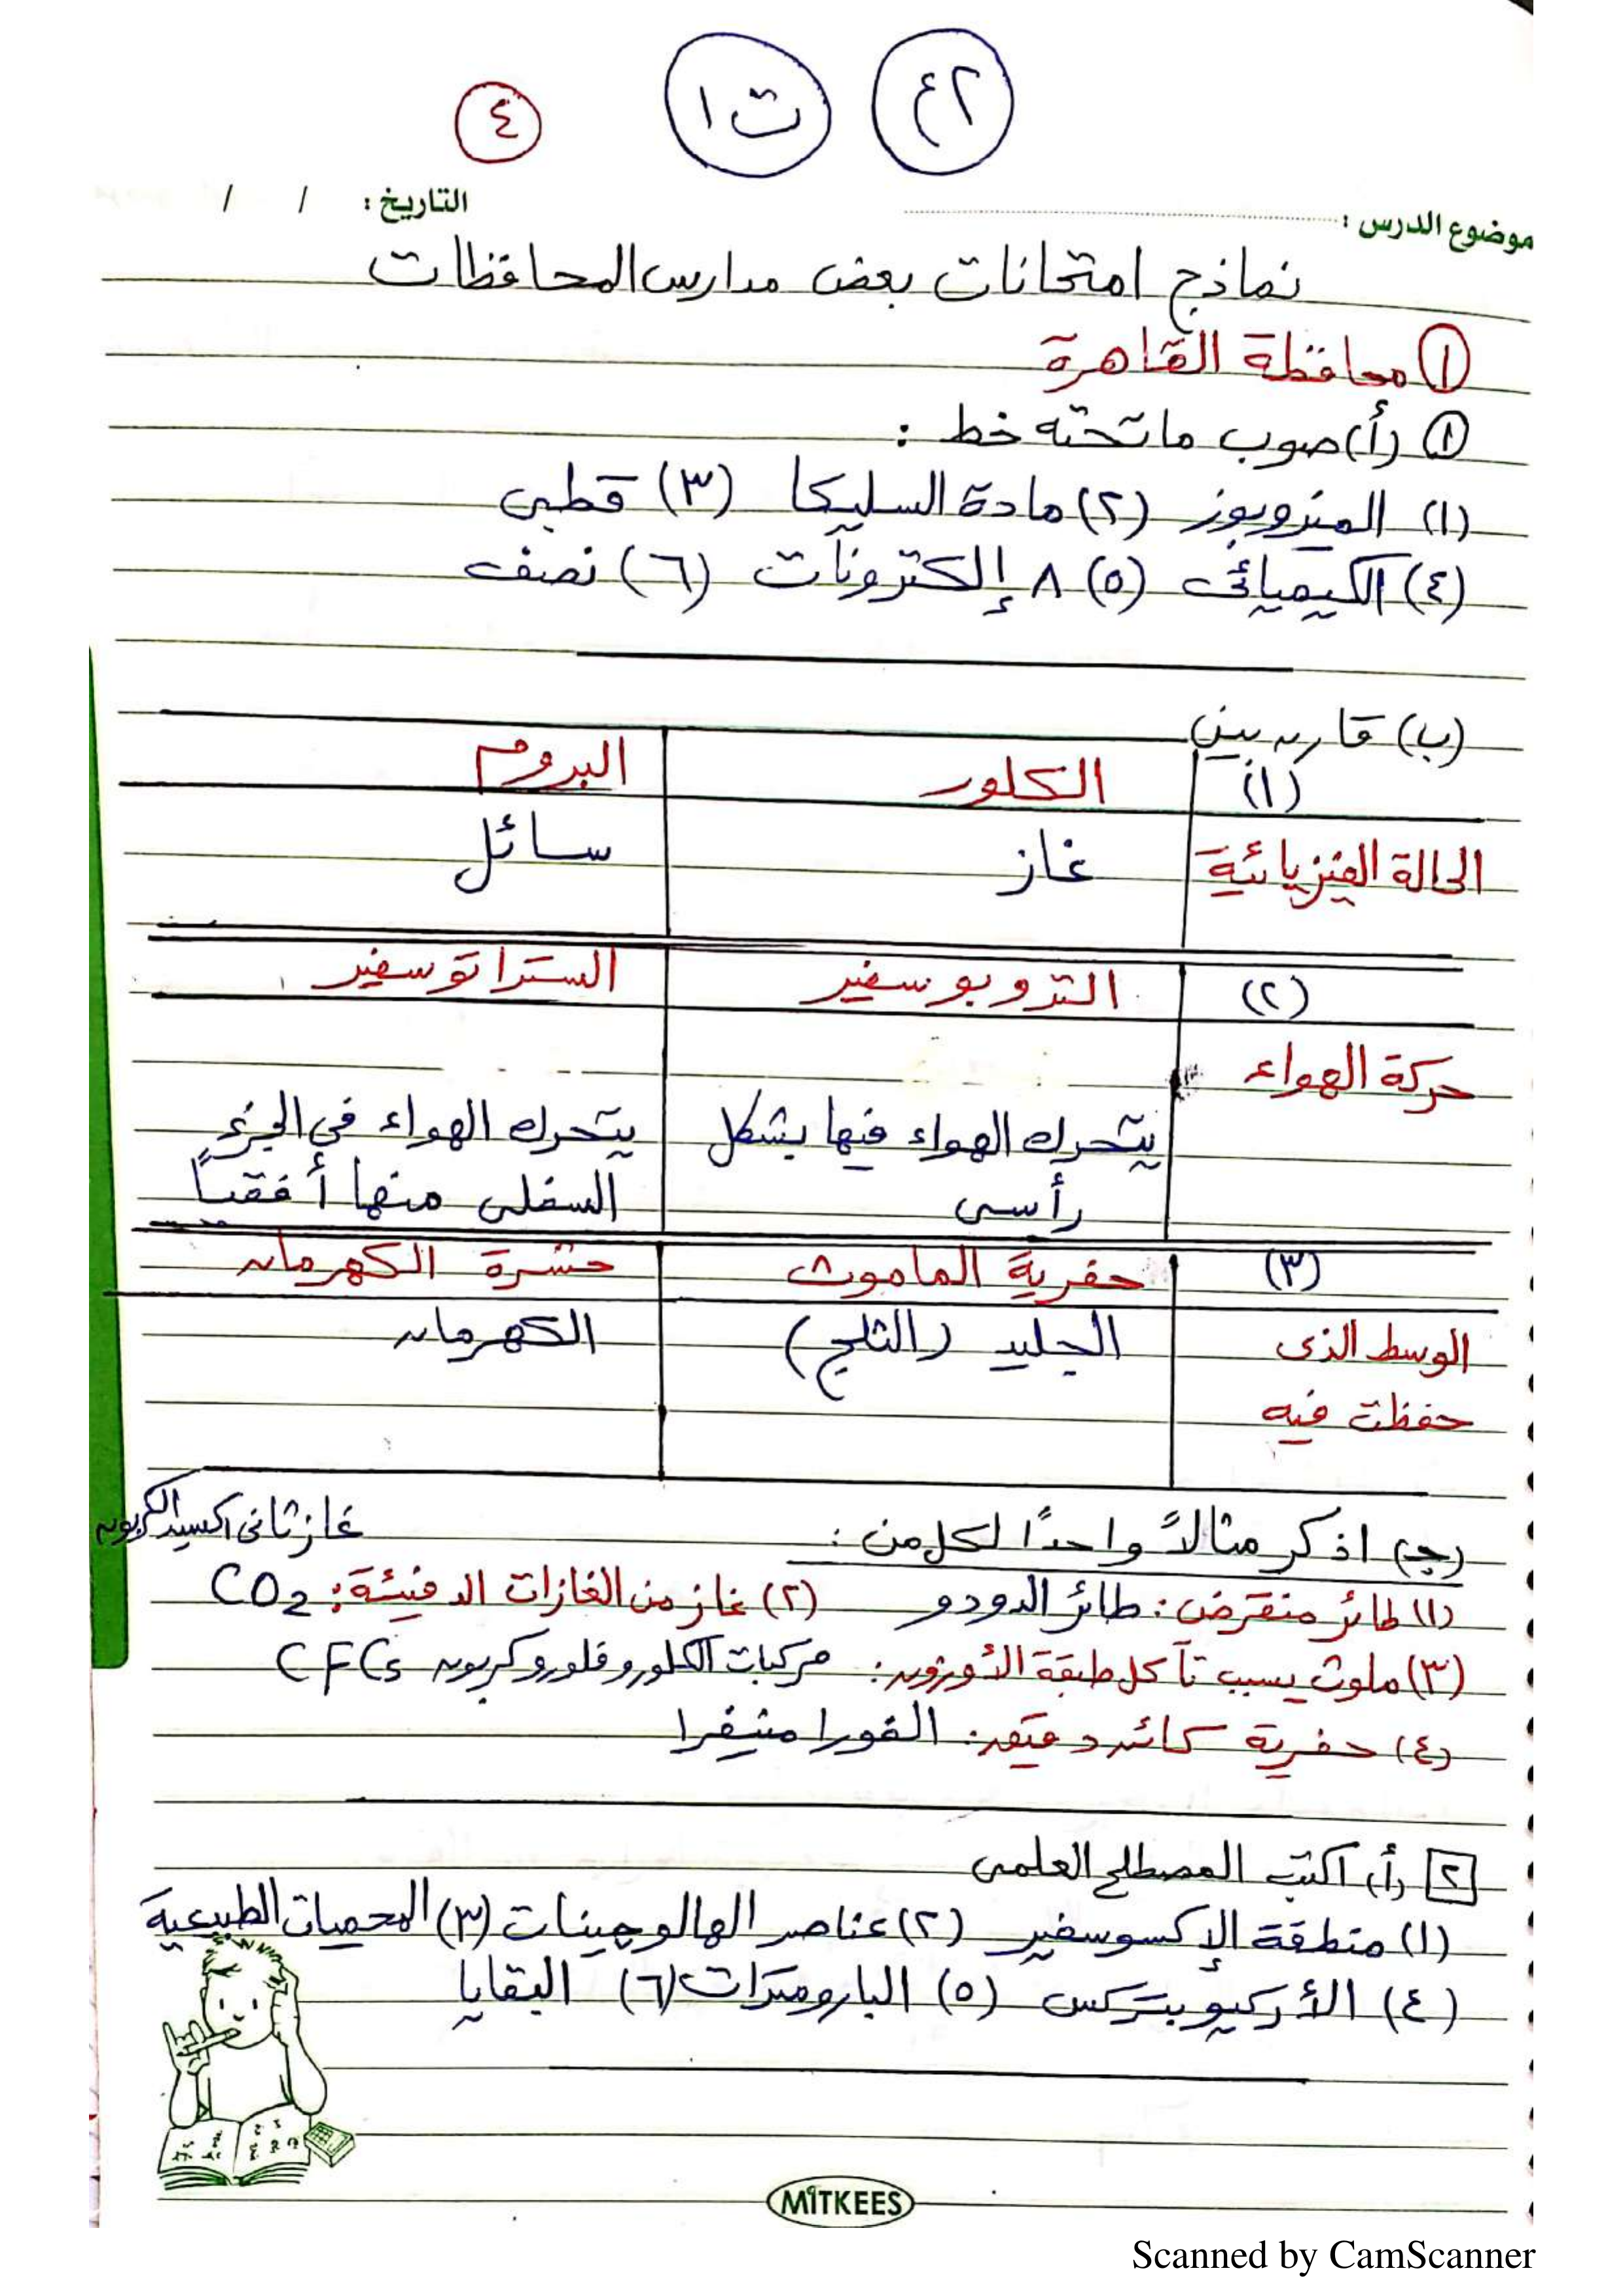 ٢ع ت١ ٤
موضوع الدرس : التاريخ : / /
نماذج امتحانات بعض مدارس المحافظات
١ محافظة القاهرة
١ (أ) صوب ما تحته خط :
(١) الميزوبوز (٢) مادة السليكا (٣) قطبى
(٤) الكيميائى (٥) ٨ إلكترونات (٦) نصف
(ب) قارن بين
(١) الكلور البروم
الحالة الفيزيائية غاز سائل
(٢) التروبوسفير الستراتوسفير
حركة الهواء
يتحرك الهواء فيها بشكل يتحرك الهواء في الجزء
رأسى السفلى منها أفقياً
(٣) حفرية الماموث حشرة الكهرمان
الوسط الذى الجليد (الثلج) الكهرمان
حفظت فيه
(جـ) اذكر مثالاً واحداً لكل من : غاز ثانى اكسيد الكربون
(١) طائر منقرض : طائر الدودو (٢) غاز من الغازات الدفيئة : CO2
(٣) ملوث يسبب تآكل طبقة الأوزون : مركبات الكلوروفلوروكربون CFCs
(٤) حفرية كائن دقيق : الفورامنيفرا
٢ (أ) اكتب المصطلح العلمى
(١) منطقة الإكسوسفير (٢) عناصر الهالوجينات (٣) المحميات الطبيعية
(٤) الأركيوبتركس (٥) البارومترات (٦) البقايا
MITKEES
Scanned by CamScanner